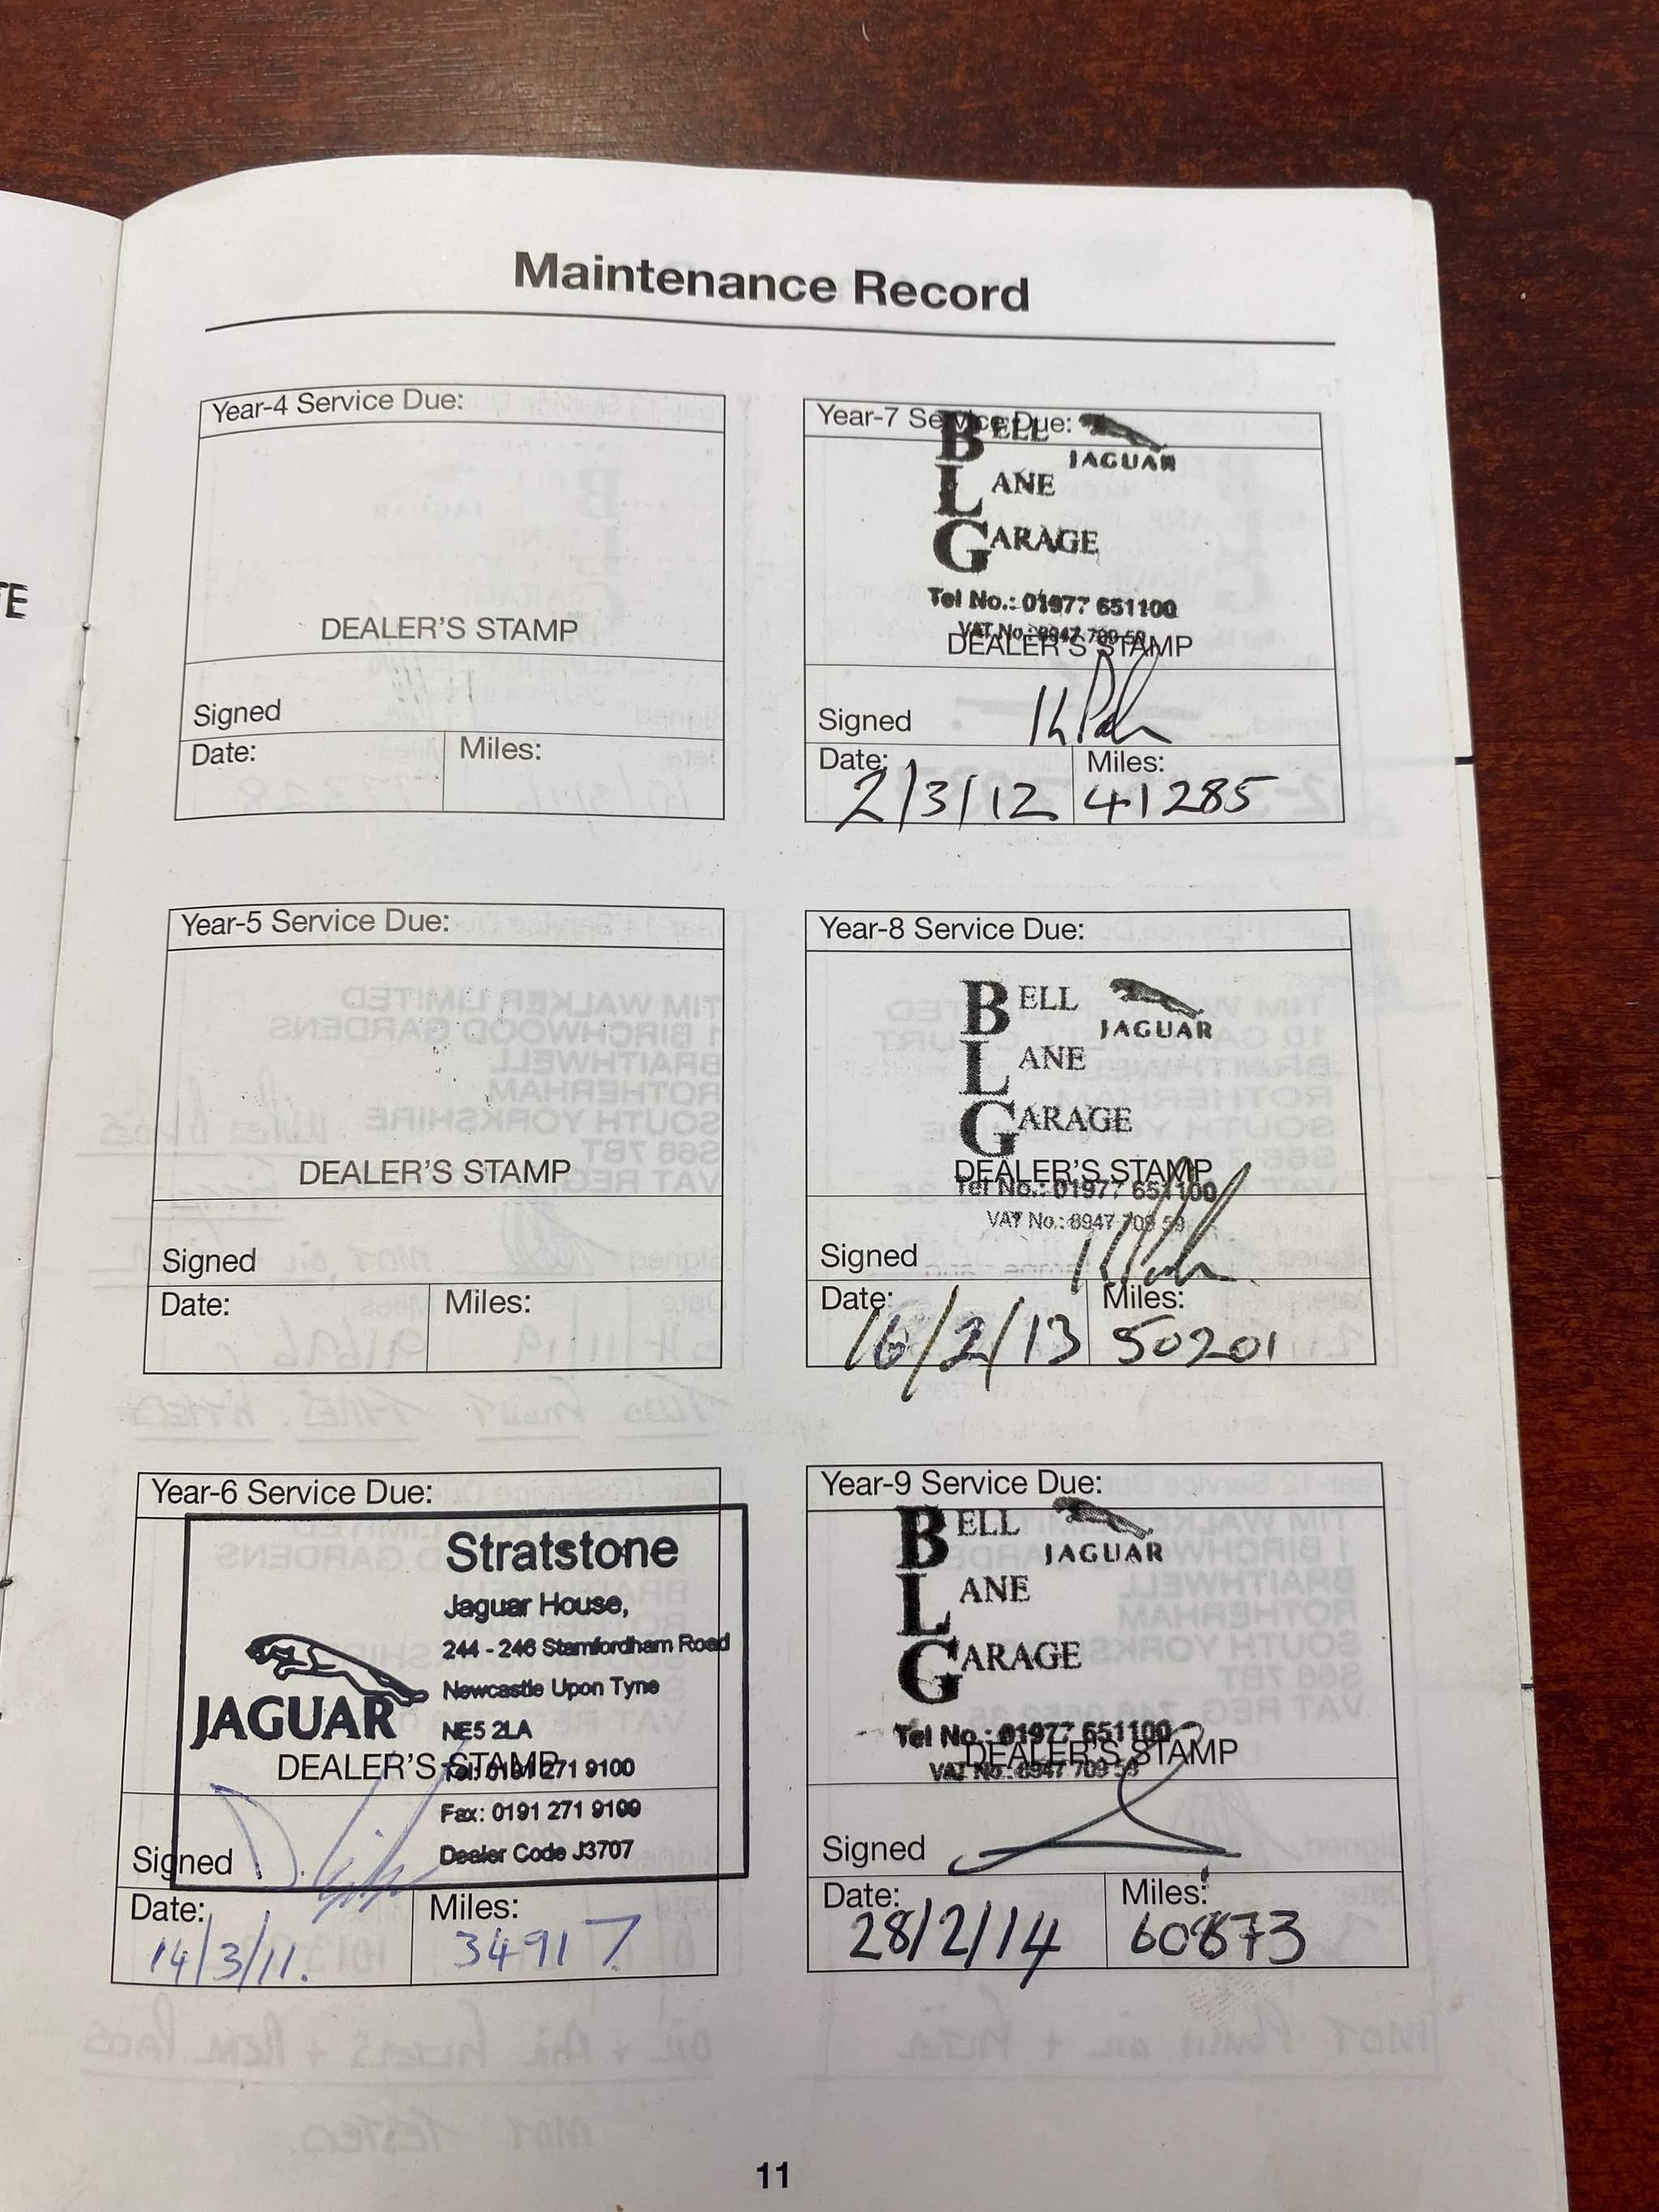 TE
Maintenance Record
Year-4 Service Due:
DEALER'S STAMP
Signed
Date:
Miles:
Year-5 Service Due:
DEALER'S STAMP
Signed
Date:
Miles:
Year-6 Service Due:
Stratstone
Jaguar House,
244 - 246 Stamfordham Road
Newcastle Upon Tyne
JAGUAR
NE5 2LA
DEALER'S STAMP
Tel: 0191 271 9100
Fax: 0191 271 9109
Signed
Dealer Code J3707
Date:
Miles:
14/3/11.
34917
Year-7 Service Due:
BELL
JAGUAR
LANE
GARAGE
Tel No.: 01977 651100
VAT No.: 8947 709 59
DEALER'S STAMP
Signed
Date:
Miles:
2/3/12
41285
Year-8 Service Due:
BELL
JAGUAR
LANE
GARAGE
DEALER'S STAMP
Tel No.: 01977 651100
VAT No.: 8947 709 59
Signed
Date:
Miles:
16/2/13
50201
Year-9 Service Due:
BELL
JAGUAR
LANE
GARAGE
Tel No.: 01977 651100
DEALER'S STAMP
VAT No.: 8947 709 59
Signed
Date:
Miles:
28/2/14
60873
11